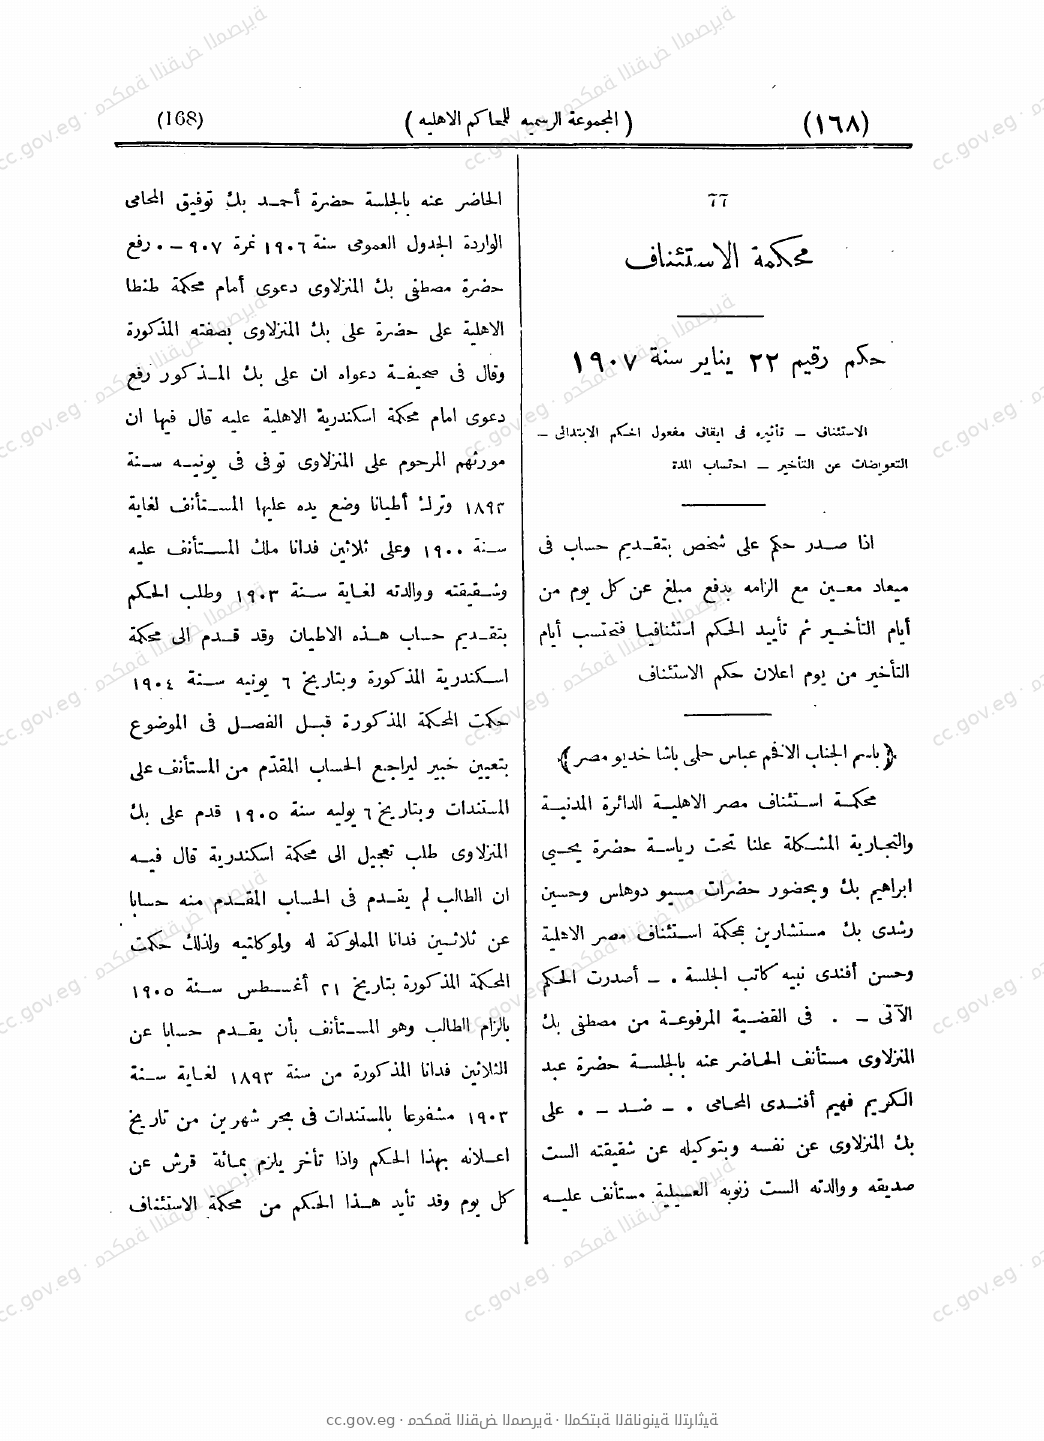 (١٦٨)
( المجموعة الرسميه للمحاكم الاهليه )
(168)
٦٦
محكمة الاستئناف
حكم رقيم ٢٢ يناير سنة ١٩٠٧
الاستئناف – تأثيره فى ايقاف مفعول الحكم الابتدائى –
التعويضات عن التأخير – احتساب المدة
اذا صدر حكم على شخص بتقديم حساب فى
ميعاد معين مع الزامه بدفع مبلغ عن كل يوم من
أيام التأخير ثم تأييد الحكم استئنافيا فتحتسب أيام
التأخير من يوم اعلان حكم الاستئناف
﴿باسم الجناب الافخم عباس حلمى باشا خديو مصر﴾
محكمة استئناف مصر الاهلية الدائرة المدنية
والتجارية المشكلة علنا تحت رياسة حضرة يحيى
ابراهيم بك وبحضور حضرات مسيو دوهلس وحسين
رشدى بك مستشارين بمحكمة استئناف مصر الاهلية
وحسن أفندى نبيه كاتب الجلسة . – أصدرت الحكم
الآتى – . فى القضية المرفوعة من مصطفى بك
المنزلاوى مستأنف الحاضر عنه بالجلسة حضرة عبد
الكريم فهيم أفندى المحامى . – ضد – . على
بك المنزلاوى عن نفسه وبتوكيله عن شقيقته الست
صديقه ووالدته الست زنوبه العسيلية مستأنف عليه
الحاضر عنه بالجلسة حضرة أحمد بك توفيق المحامى
الواردة الجدول العمومى سنة ١٩٠٦ نمرة ٩٠٧ – . رفع
حضرة مصطفى بك المنزلاوى دعوى أمام محكمة طنطا
الاهلية على حضرة على بك المنزلاوى بصفته المذكورة
وقال فى صحيفة دعواه ان على بك المذكور رفع
دعوى امام محكمة اسكندرية الاهلية عليه قال فيها ان
مورثهم المرحوم على المنزلاوى توفى فى يونيه سنة
١٨٩٣ وترك أطيانا وضع يده عليها المستأنف لغاية
سنة ١٩٠٠ وعلى ثلاثين فدانا ملك المستأنف عليه
وشقيقته ووالدته لغاية سنة ١٩٠٣ وطلب الحكم
بتقديم حساب هذه الاطيان وقد قدم الى محكمة
اسكندرية المذكورة وبتاريخ ٦ يونيه سنة ١٩٠٤
حكمت المحكمة المذكورة قبل الفصل فى الموضوع
بتعيين خبير ليراجع الحساب المقدّم من المستأنف على
المستندات وبتاريخ ٦ يوليه سنة ١٩٠٥ قدم على بك
المنزلاوى طلب تعجيل الى محكمة اسكندرية قال فيه
ان الطالب لم يقدم فى الحساب المقدم منه حسابا
عن ثلاثين فدانا المملوكة له ولموكلتيه ولذلك حكمت
المحكمة المذكورة بتاريخ ٢١ أغسطس سنة ١٩٠٥
بالزام الطالب وهو المستأنف بأن يقدم حسابا عن
الثلاثين فدانا المذكورة من سنة ١٨٩٣ لغاية سنة
١٩٠٣ مشفوعا بالمستندات فى بحر شهرين من تاريخ
اعلانه بهذا الحكم واذا تأخر يلزم بمائة قرش عن
كل يوم وقد تأيد هذا الحكم من محكمة الاستئناف
cc.gov.eg · محكمة النقض المصرية · المكتبة القانونية التراثية